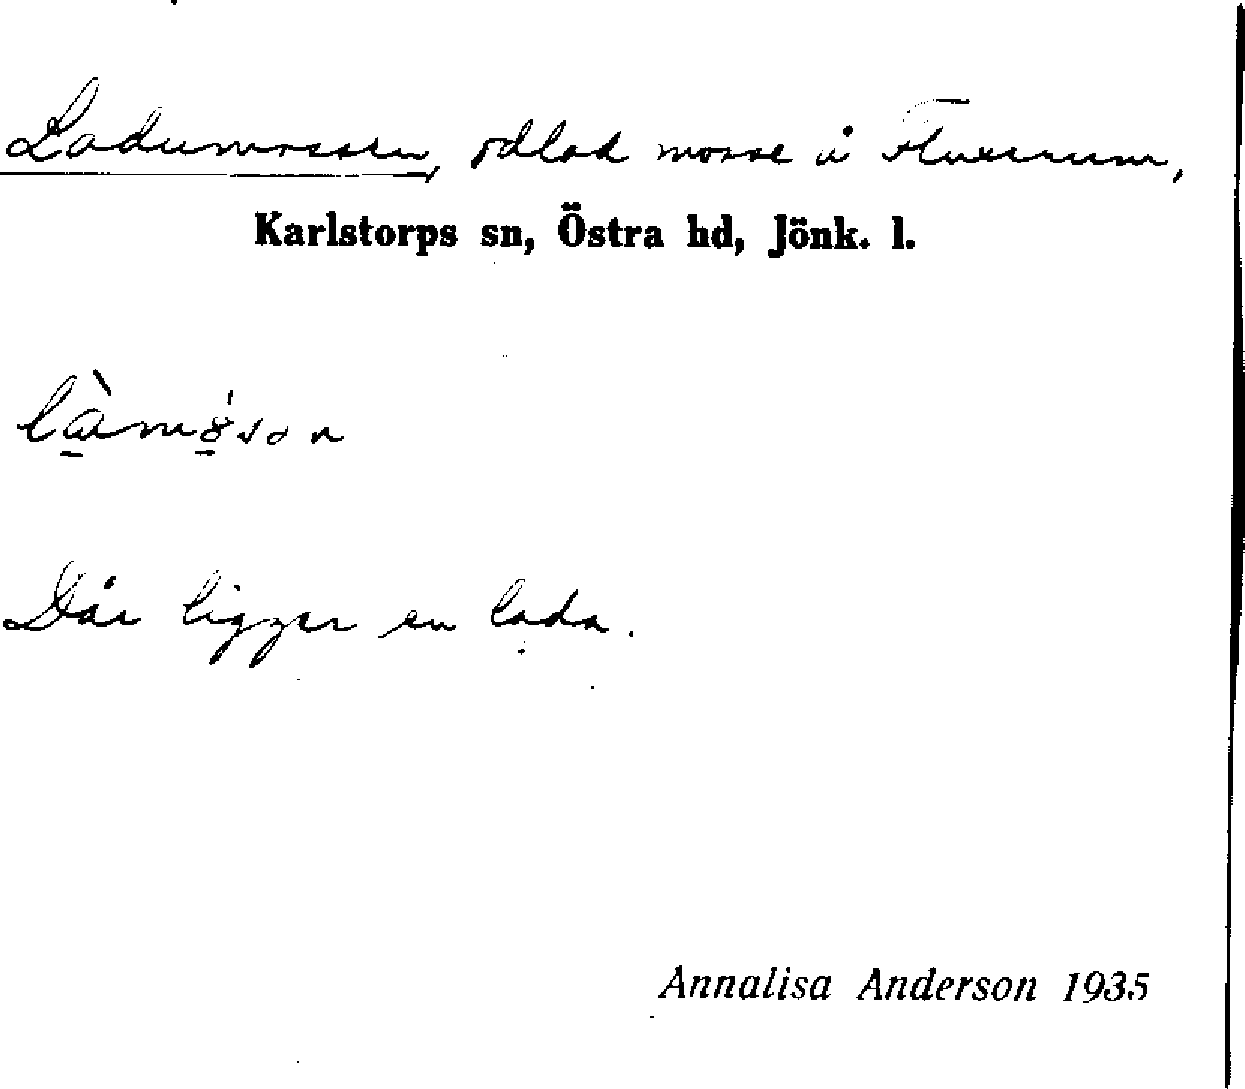 Ladumossen, odlad mosse å Fluxerum,
Karlstorps sn, Östra hd, Jönk. l.
Där ligger en lada.
Annalisa Anderson 1935